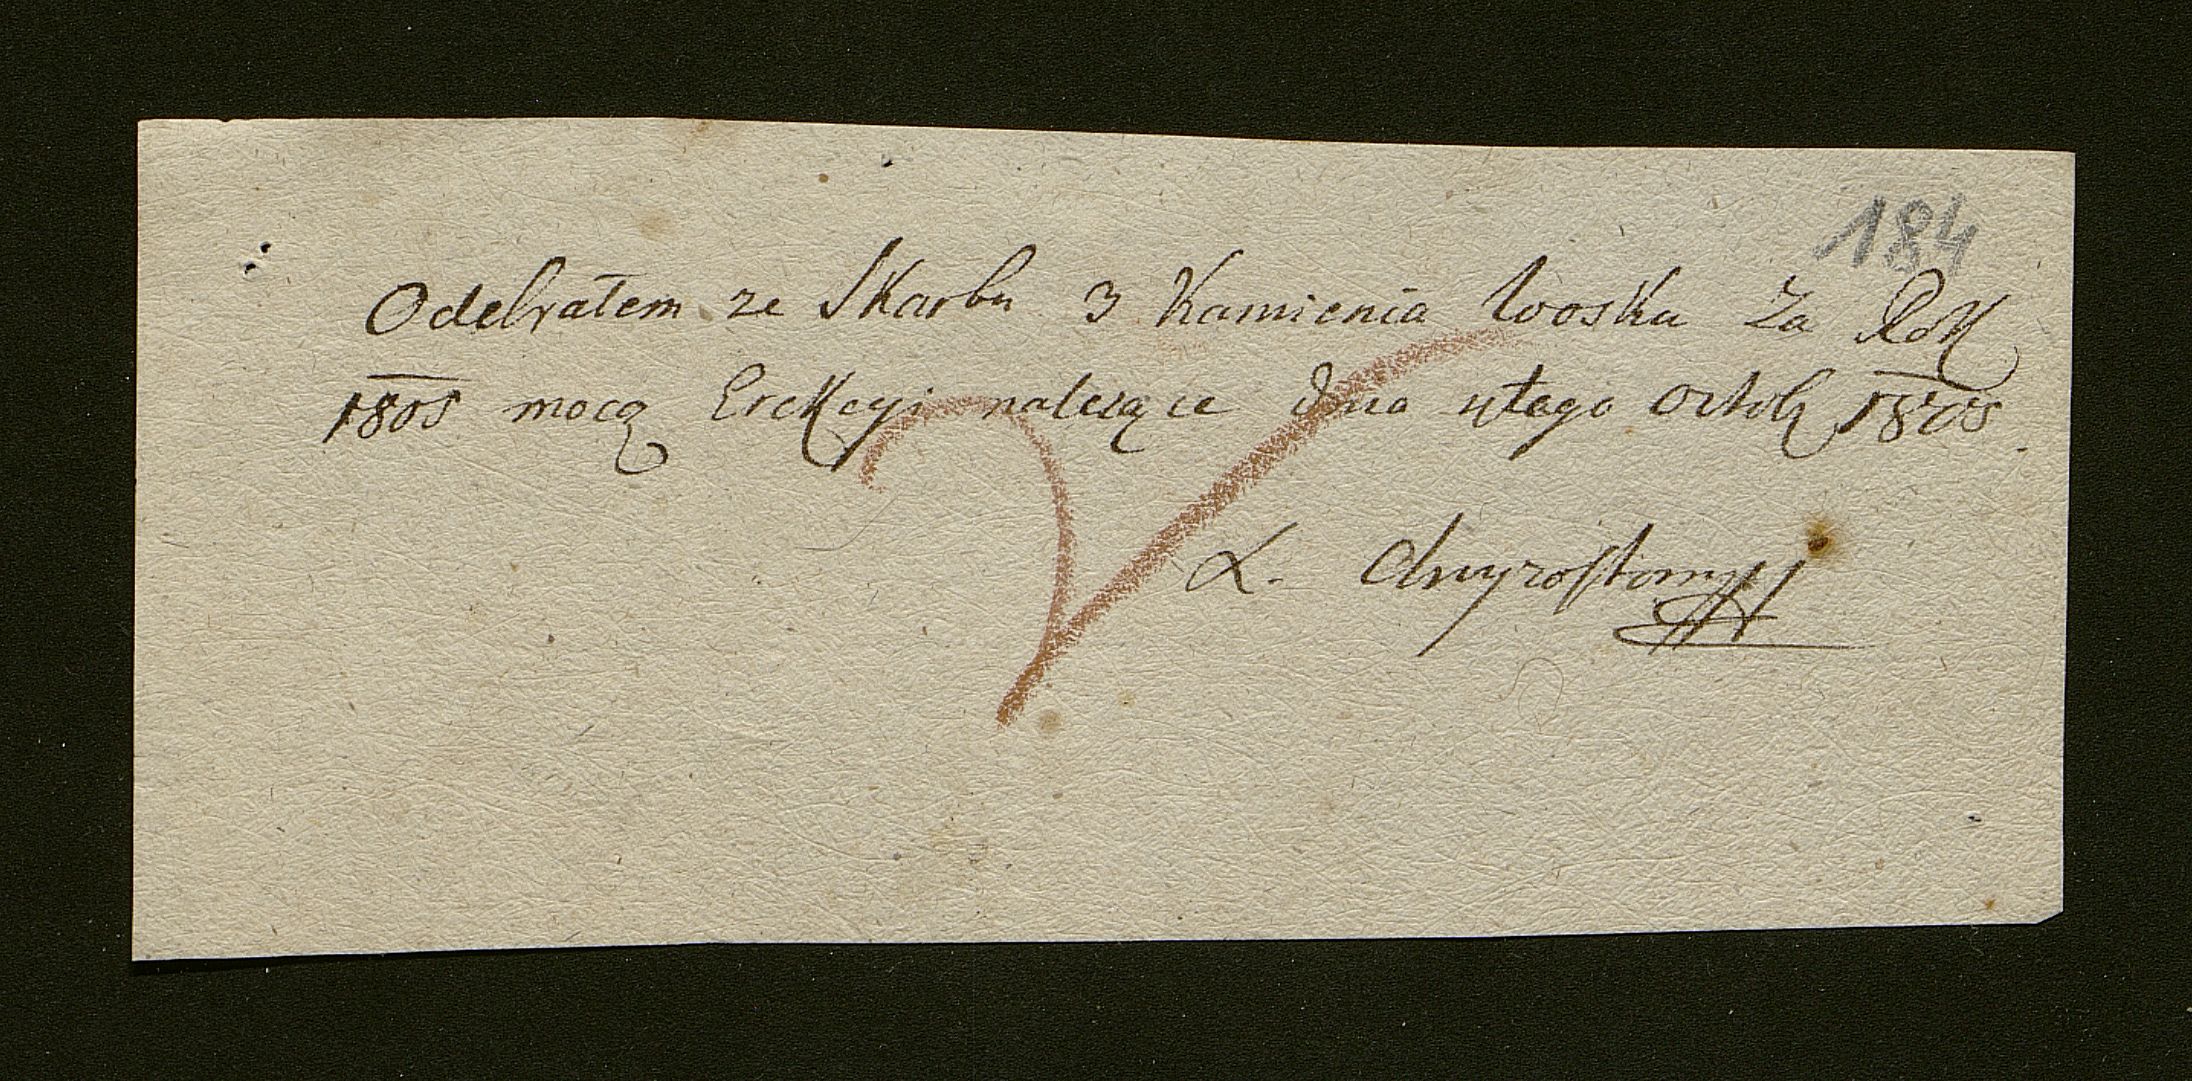 184
Odebrałem ze Skarbu 3 Kamienia Wosku Za Rok
1808 mocą Erekcyi należące Dnia 4tego Octob 1808
X. Chryzostom